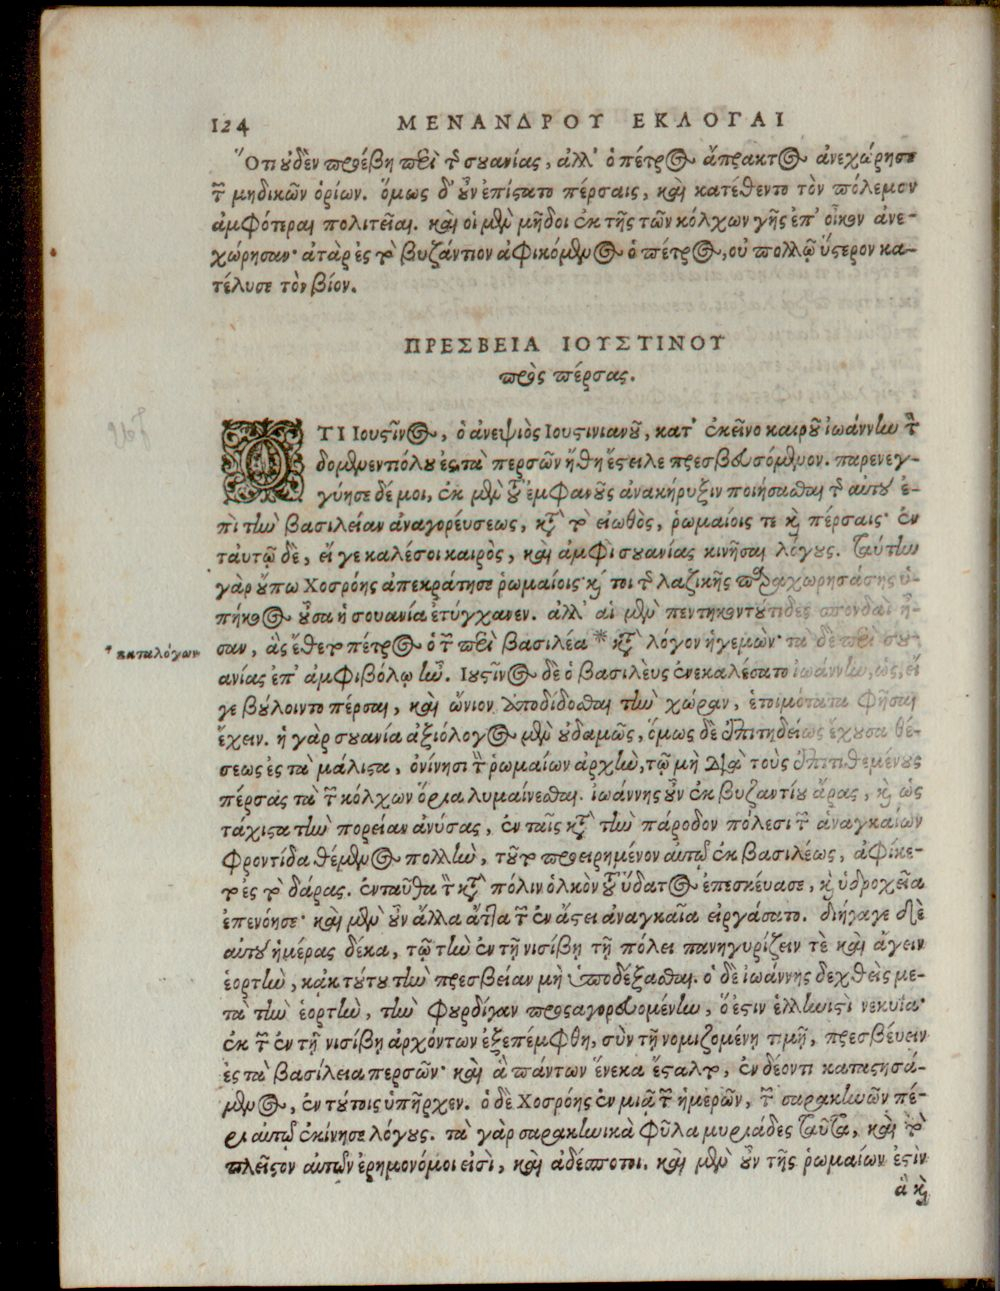 124 ΜΕΝΑΝΔΡΟΥ ΕΚΛΟΓΑΙ
Ὅτι οὐδὲν προέβη περὶ τῆς σουανίας, ἀλλ' ὁ πέτρος ἄπρακτος ἀνεχώρησε
τῶν μηδικῶν ὁρίων. ὅμως δ' οὖν ἐπίσαντο πέρσαις, καὶ κατέθεντο τὸν πόλεμον
ἀμφότεραι πολιτεῖαι. καὶ οἱ μὲν μῆδοι ἐκ τῆς τῶν κόλχων γῆς ἐπ' οἶκον ἀνε-
χώρησαν· ἀτὰρ ἐς τὸ βυζάντιον ἀφικόμενος ὁ πέτρος, οὐ πολλῷ ὕστερον κα-
τέλυσε τὸν βίον.
ΠΡΕΣΒΕΙΑ ΙΟΥΣΤΙΝΟΥ
πρὸς πέρσας.
ΟΤΙ Ιουστῖνος, ὁ ἀνεψιὸς Ιουστινιανοῦ, κατ' ἐκεῖνο καιροῦ ἰωάννην τὸν
δομνεντιόλου ἐς τὰ περσῶν ἤθη ἔστειλε πρεσβευσόμενον. παρενεγ-
γύησε δέ μοι, ἐκ μὲν τοῦ ἐμφανοῦς ἀνακήρυξιν ποιήσασθαι τῆς αὐτοῦ ἐ-
πὶ τὴν βασιλείαν ἀναγορεύσεως, κατὰ τὸ εἰωθὸς, ῥωμαίοις τε καὶ πέρσαις· ἐν
ταὐτῷ δὲ, εἴ γε καλέσοι καιρὸς, καὶ ἀμφὶ σουανίας κινῆσαι λόγους. ταύτην
γὰρ οὔπω Χοσρόης ἀπεκράτησε ῥωμαίοις· καί τοι τῆς λαζικῆς παραχωρησάσης ὑ-
πήκοος οὖσα ἡ σουανία ἐτύγχανεν. ἀλλ' αἱ μὲν πεντηκοντούτιδες σπονδαὶ ἦ-
σαν, ἃς ἔθετο πέτρος ὁ τῶν περὶ βασιλέα * κατὰ λόγον ἡγεμὼν· τὰ δὲ περὶ σου-
* καταλόγων
ανίας ἐπ' ἀμφιβόλῳ ἦν. Ιουστῖνος δὲ ὁ βασιλεὺς ἐνεκαλέσατο ἰωάννην, ὡς, εἴ
γε βούλοιντο πέρσαι, καὶ ὤνιον ἀποδίδοσθαι τὴν χώραν, ἑτοιμότατα φῆσαι
ἔχειν. ἡ γὰρ σουανία ἀξιόλογος μὲν οὐδαμῶς, ὅμως δὲ ἐπιτηδείως ἔχουσα θέ-
σεως ἐς τὰ μάλιστα, ὀνίνησι τὴν ῥωμαίων ἀρχὴν, τῷ μὴ διὰ τοὺς ἐπιτιθεμένους
πέρσας τὰ τῶν κόλχων ὅρια λυμαίνεσθαι. ἰωάννης οὖν ἐκ βυζαντίου ἄρας, καὶ ὡς
τάχιστα τὴν πορείαν ἀνύσας, ἐν ταῖς κατὰ τὴν πάροδον πόλεσι τῶν ἀναγκαίων
φροντίδα θέμενος πολλὴν, τοῦτο προειρημένον αὐτῷ ἐκ βασιλέως, ἀφίκε-
το ἐς τὸ δάρας. ἐνταῦθα τὸν κατὰ πόλιν ὁλκὸν τοῦ ὕδατος ἐπεσκεύασε, καὶ ὑδροχεῖα
ἐπενόησε· καὶ μὲν οὖν ἄλλα ἄττα τῶν ἐν ἄστει ἀναγκαῖα εἰργάσατο. διήγαγε δὲ
αὐτοῦ ἡμέρας δέκα, τῷ τὴν ἐν τῇ νισίβῃ τῇ πόλει πανηγυρίζειν τὲ καὶ ἄγειν
ἑορτὴν, κἀκ τούτου τὴν πρεσβείαν μὴ ὑποδέξασθαι. ὁ δὲ ἰωάννης δεχθεὶς με-
τὰ τὴν ἑορτὴν, τὴν φουρδίγαν προσαγορευομένην, ὅ ἐστιν ἑλληνιστὶ νεκυΐα·
ἐκ τῶν ἐν τῇ νισίβῃ ἀρχόντων ἐξεπέμφθη, σὺν τῇ νομιζομένῃ τιμῇ, πρεσβεύειν
ἐς τὰ βασίλεια περσῶν· καὶ ἁπάντων ἕνεκα ἔσταλτο, ἐν δέοντι καταστησά-
μενος, ἐν τούτοις ὑπῆρχεν. ὁ δὲ Χοσρόης ἐν μιᾷ τῶν ἡμερῶν, τῶν σαρακηνῶν πέ-
ρι αὐτῷ ἐκίνησε λόγους. τὰ γὰρ σαρακηνικὰ φῦλα μυριάδες ταῦτα, καὶ τὸ
πλεῖστον αὐτῶν ἐρημονόμοι εἰσὶ, καὶ ἀδέσποτοι. καὶ μὲν οὖν τῆς ῥωμαίων ἐστὶν
ἃ καὶ